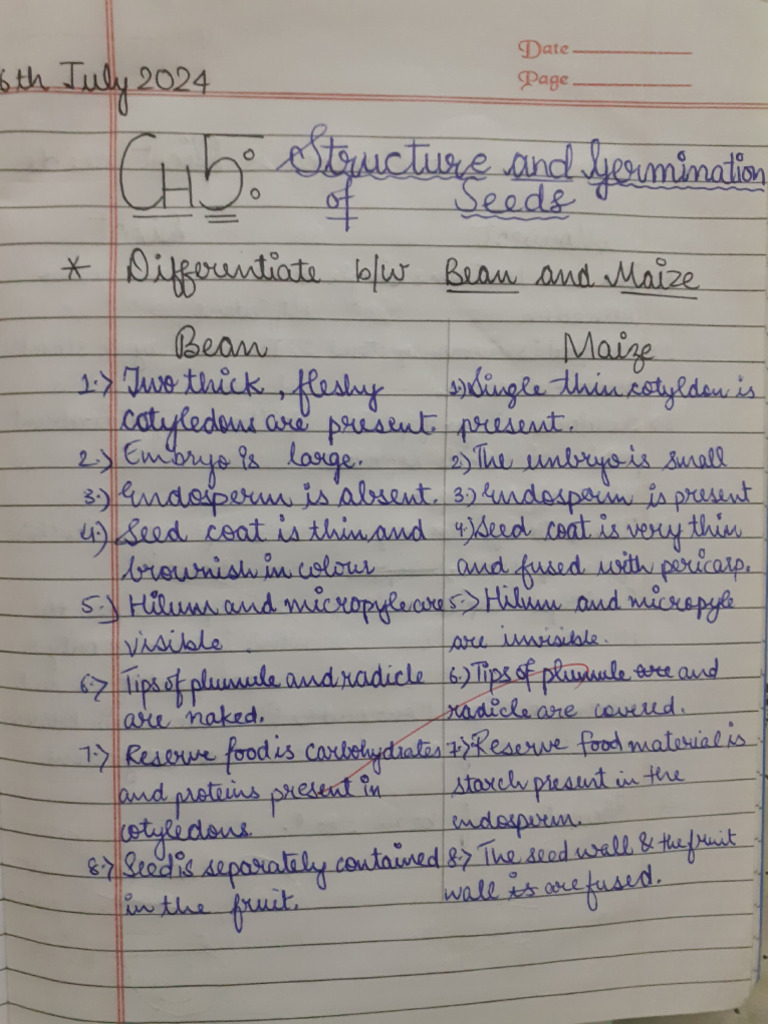 Date
6th July 2024
Page
CH5: Structure and Germination
of Seeds
* Differentiate b/w Bean and Maize
Bean
1.> Two thick, fleshy
cotyledons are present.
2.> Embryo is large.
3.> Endosperm is absent.
4.) Seed coat is thin and
brownish in colour
5.) Hilum and micropyle are
visible.
6.> Tips of plumule and radicle
are naked.
7.> Reserve food is carbohydrates
and proteins present in
cotyledons.
8.> Seed is separately contained
in the fruit.
Maize
1.) Single thin cotyldon is
present.
2.) The embryo is small
3.) Endosperm is present
4.) Seed coat is very thin
and fused with pericasp.
5.> Hilum and micropyle
are invisible.
6.) Tips of plumule are and
radicle are covered.
7.> Reserve food material is
starch present in the
endosperm.
8.> The seed wall & the fruit
wall is are fused.